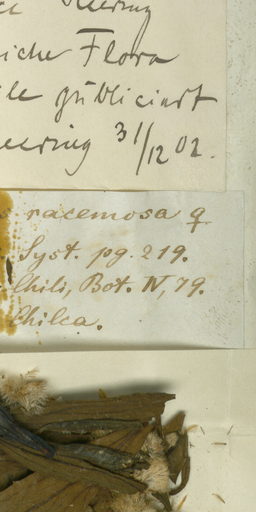 Meering
iche Flora
le publiciert
eering 31/12 02.
racemosa q
Syst. pg. 219.
Chili, Bot. IV, 79.
Chilca.